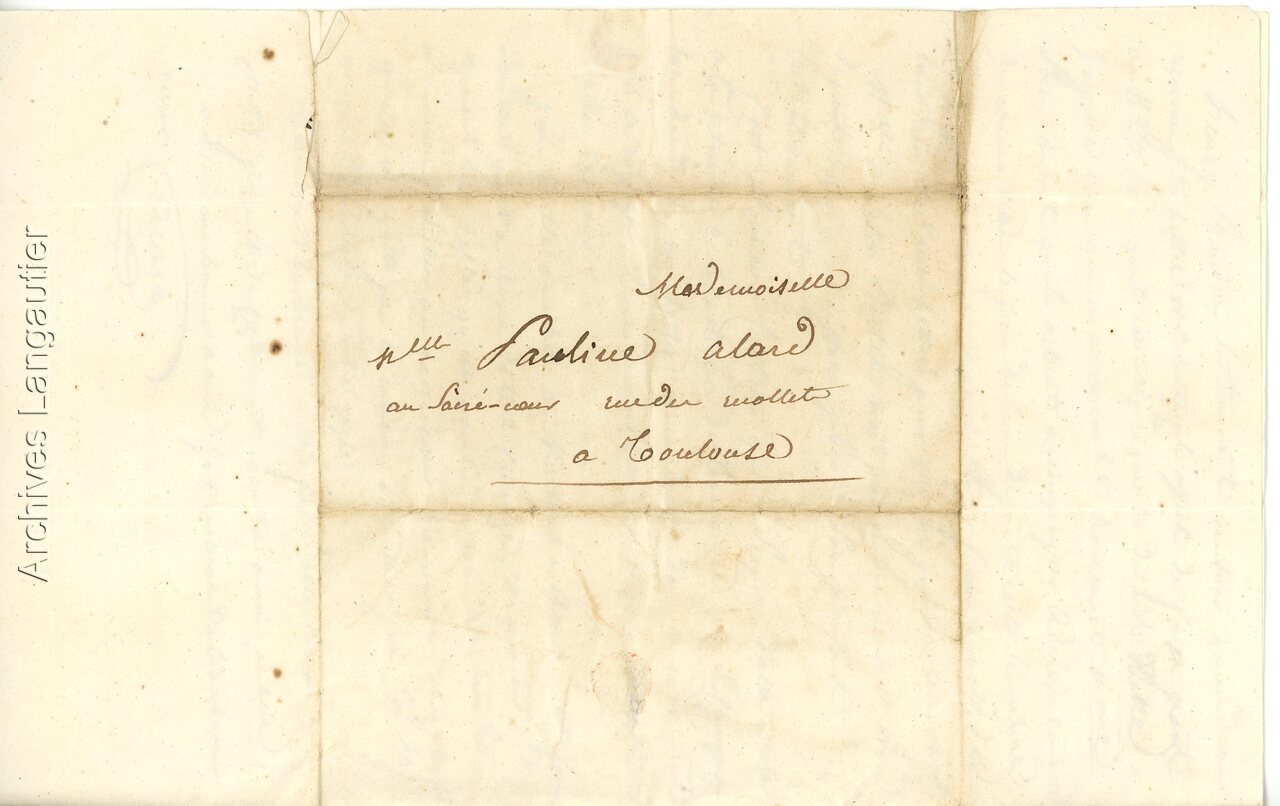 Mademoiselle
Mlle Pauline alard
au Sacré-cœur rue des mollets
a Toulouse
Archives Langautier